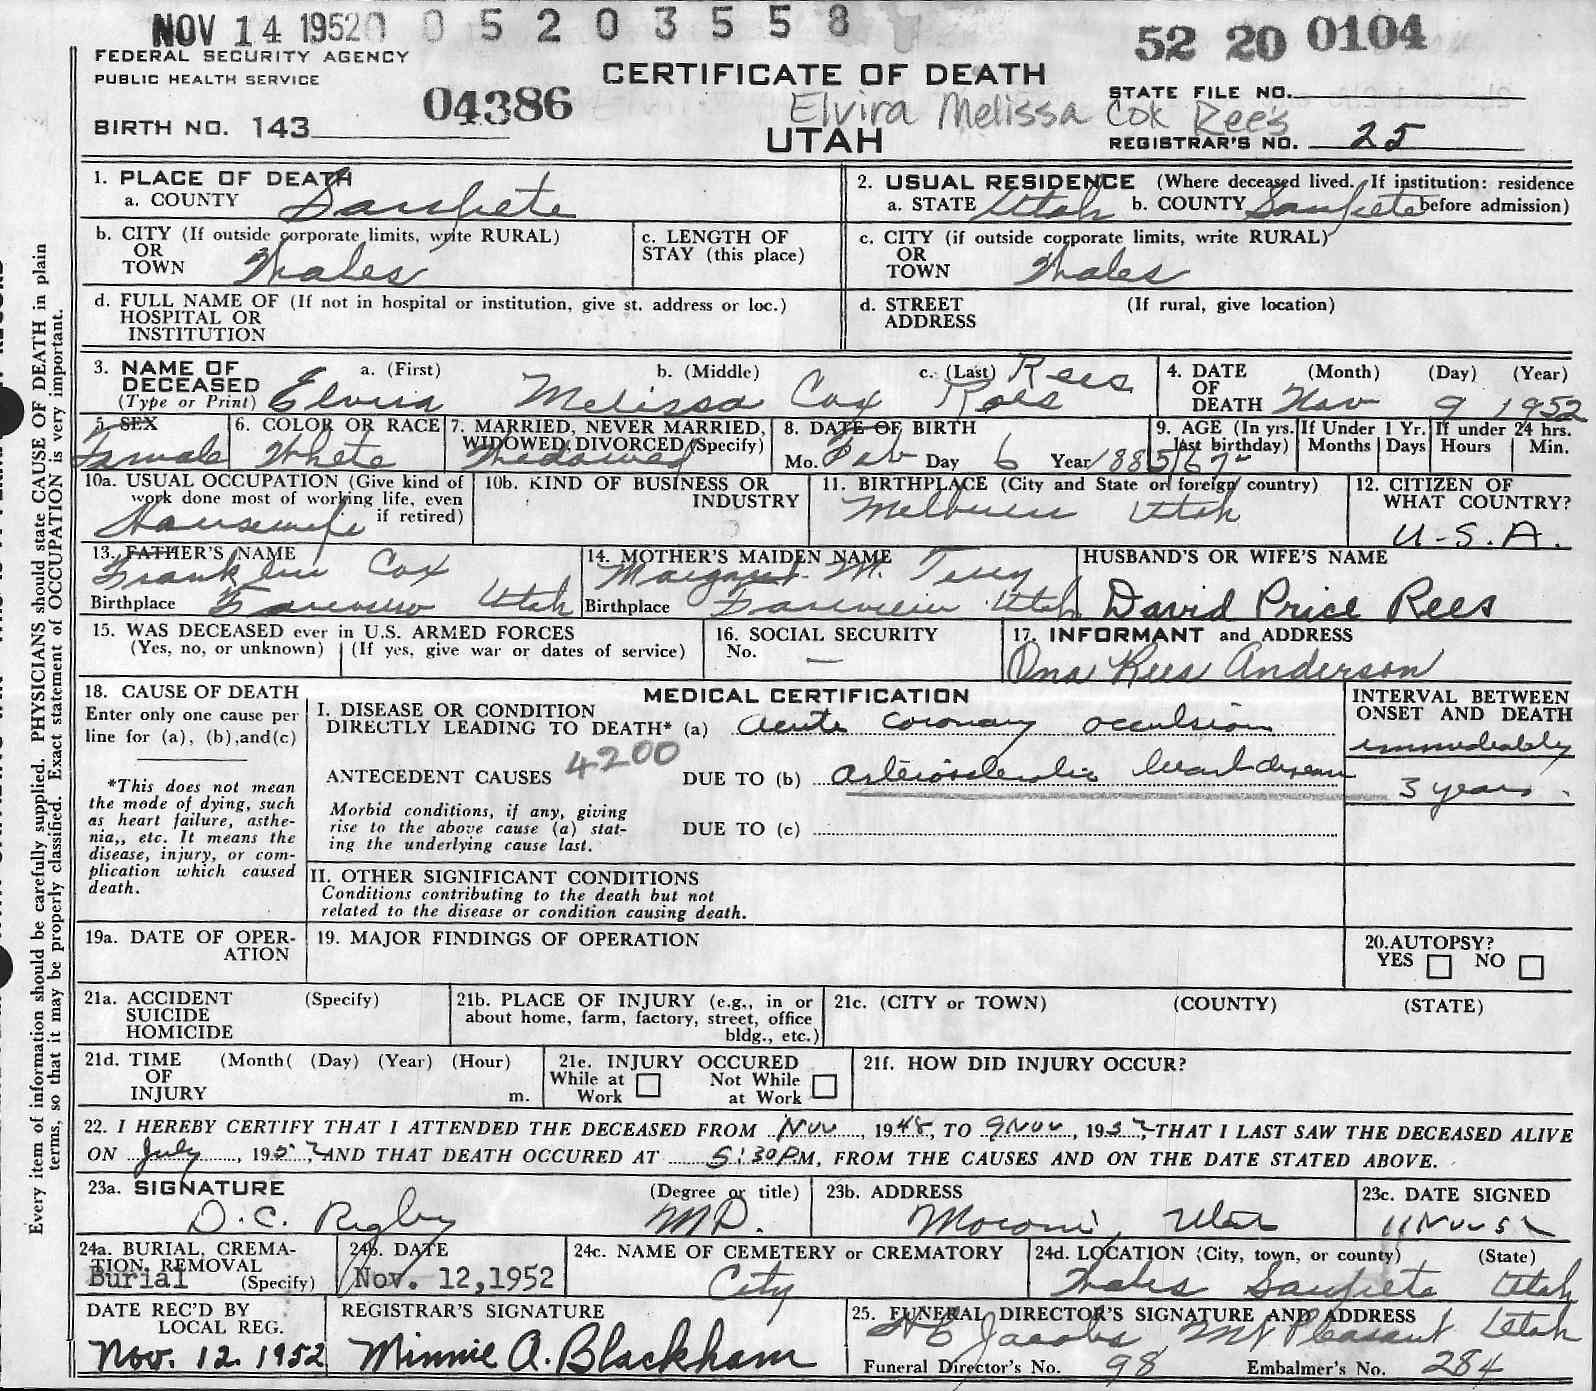 NOV 14 1952 0 0 5 2 0 3 5 5 8
52 20 0104
FEDERAL SECURITY AGENCY
PUBLIC HEALTH SERVICE
CERTIFICATE OF DEATH
STATE FILE NO.
04386
Elvira Melissa Cox Rees
BIRTH NO. 143
UTAH
REGISTRAR'S NO. 25
Every item of information should be carefully supplied. PHYSICIANS should state CAUSE OF DEATH in plain
terms, so that it may be properly classified. Exact statement of OCCUPATION is very important.
1. PLACE OF DEATH
a. COUNTY Sanpete
2. USUAL RESIDENCE (Where deceased lived. If institution: residence
a. STATE Utah b. COUNTY Sanpete before admission)
b. CITY (If outside corporate limits, write RURAL)
OR
TOWN Wales
c. LENGTH OF
STAY (this place)
c. CITY (if outside corporate limits, write RURAL)
OR
TOWN Wales
d. FULL NAME OF (If not in hospital or institution, give st. address or loc.)
HOSPITAL OR
INSTITUTION
d. STREET (If rural, give location)
ADDRESS
3. NAME OF a. (First) b. (Middle) c. (Last) Rees
DECEASED
(Type or Print) Elvira Melissa Cox Rees
4. DATE (Month) (Day) (Year)
OF
DEATH Nov 9 1952
5. SEX
Female
6. COLOR OR RACE
White
7. MARRIED, NEVER MARRIED,
WIDOWED, DIVORCED (Specify)
Widowed
8. DATE OF BIRTH
Mo. Feb Day 6 Year 1885
9. AGE (In yrs.
last birthday) 67
If Under 1 Yr.
Months Days
If under 24 hrs.
Hours Min.
10a. USUAL OCCUPATION (Give kind of
work done most of working life, even
if retired)
Housewife
10b. KIND OF BUSINESS OR
INDUSTRY
11. BIRTHPLACE (City and State or foreign country)
Utah
12. CITIZEN OF
WHAT COUNTRY?
U.S.A.
13. FATHER'S NAME
Franklin Cox
Birthplace Fairview Utah
14. MOTHER'S MAIDEN NAME
Margaret M. Terry
Birthplace Fairview Utah
HUSBAND'S OR WIFE'S NAME
David Price Rees
15. WAS DECEASED ever in U.S. ARMED FORCES
(Yes, no, or unknown) (If yes, give war or dates of service)
16. SOCIAL SECURITY
No. —
17. INFORMANT and ADDRESS
Ona Rees Anderson
18. CAUSE OF DEATH
Enter only one cause per
line for (a), (b),and(c)
*This does not mean
the mode of dying, such
as heart failure, asthe-
nia,, etc. It means the
disease, injury, or com-
plication which caused
death.
MEDICAL CERTIFICATION
I. DISEASE OR CONDITION
DIRECTLY LEADING TO DEATH* (a) acute coronary occulsion
4200
ANTECEDENT CAUSES DUE TO (b) arteriosclerotic heart disease
Morbid conditions, if any, giving
rise to the above cause (a) stat-
ing the underlying cause last.
DUE TO (c)
INTERVAL BETWEEN
ONSET AND DEATH
immediately
3 years
II. OTHER SIGNIFICANT CONDITIONS
Conditions contributing to the death but not
related to the disease or condition causing death.
19a. DATE OF OPER-
ATION
19. MAJOR FINDINGS OF OPERATION
20.AUTOPSY?
YES NO
21a. ACCIDENT (Specify)
SUICIDE
HOMICIDE
21b. PLACE OF INJURY (e.g., in or
about home, farm, factory, street, office
bldg., etc.)
21c. (CITY or TOWN) (COUNTY) (STATE)
21d. TIME (Month( (Day) (Year) (Hour)
OF
INJURY m.
21e. INJURY OCCURED
While at Not While
Work at Work
21f. HOW DID INJURY OCCUR?
22. I HEREBY CERTIFY THAT I ATTENDED THE DECEASED FROM Nov, 1948, TO 9 Nov, 1952, THAT I LAST SAW THE DECEASED ALIVE
ON July, 1952, AND THAT DEATH OCCURED AT 5:30 P.M, FROM THE CAUSES AND ON THE DATE STATED ABOVE.
23a. SIGNATURE (Degree or title)
D.C. Rigby M.D.
23b. ADDRESS
Moroni, Utah
23c. DATE SIGNED
11 Nov 52
24a. BURIAL, CREMA-
TION, REMOVAL
Burial (Specify)
24b. DATE
Nov. 12,1952
24c. NAME OF CEMETERY or CREMATORY
City
24d. LOCATION (City, town, or county) (State)
Wales Sanpete Utah
DATE REC'D BY
LOCAL REG.
Nov. 12. 1952
REGISTRAR'S SIGNATURE
Minnie A. Blackham
25. FUNERAL DIRECTOR'S SIGNATURE AND ADDRESS
Jacobs Mt Pleasant Utah
Funeral Director's No. 98 Embalmer's No. 284